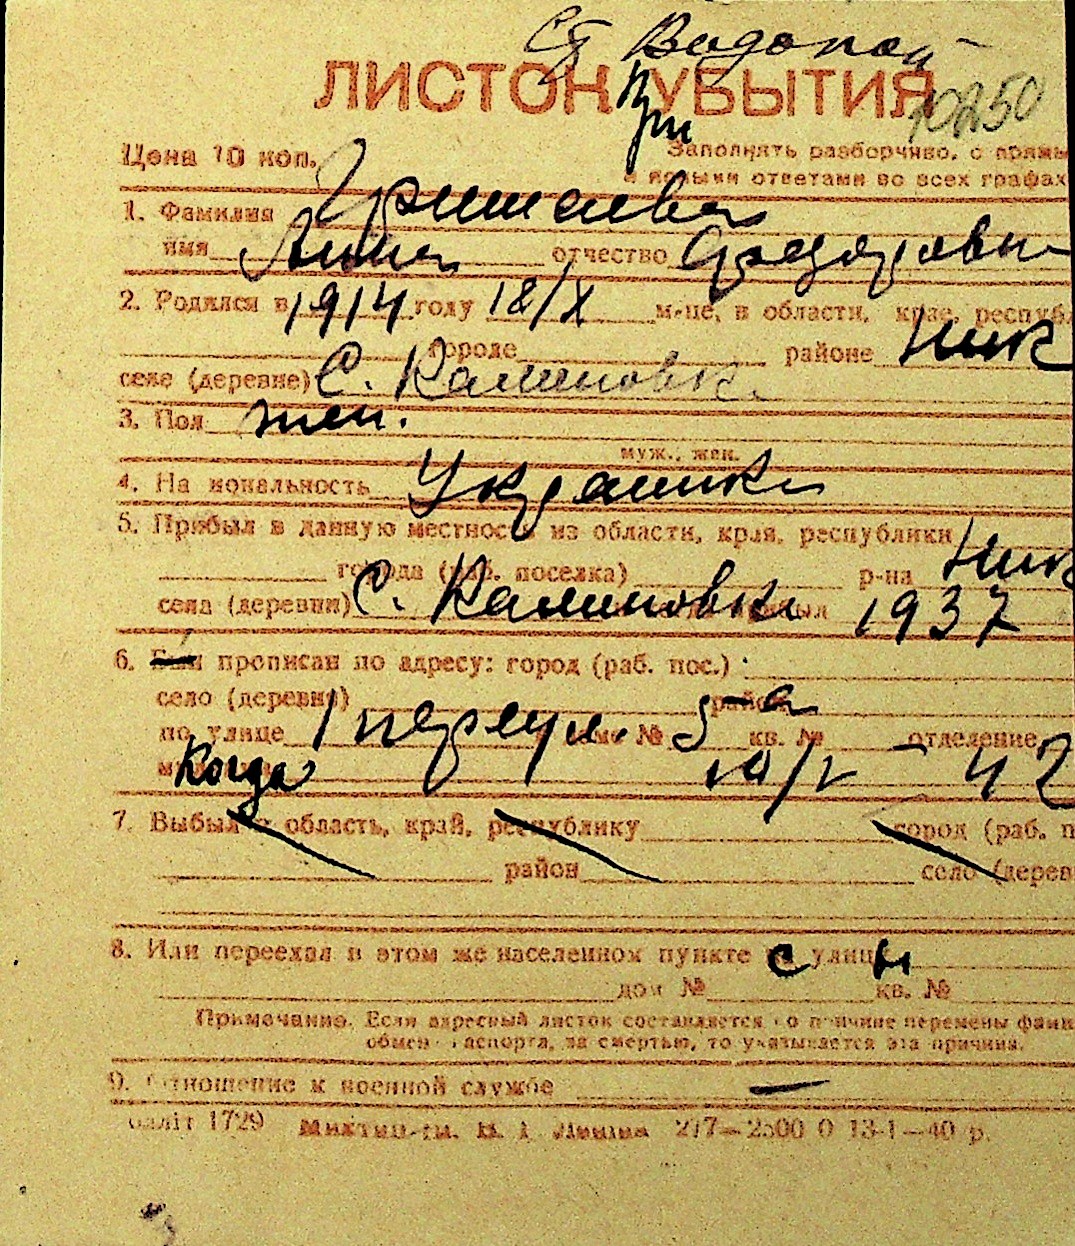 Ст Водопой
ЛИСТОК УБЫТИЯ
При
10250
Цена 10 коп.
Заполнять разборчиво, с прямы
и ясными ответами во всех графах
1. Фамилия Гришаева
имя Анна отчество Федоровн
2. Родился в 1914 году 18/X м-це, в области, крае, республ
городе районе Ник
селе (деревне) С. Калиновк
3. Пол жен.
муж., жен.
4. Национальность Украинка
5. Прибыл в данную местность из области, края, республики
города (раб. поселка) р-на Ник
села (деревни) С. Калиновка прибыл 1937
6. Был прописан по адресу: город (раб. пос.) :
село (деревня) район
по улице 1 переул. дом № 5-а кв. № отделение
Когда 42
7. Выбыл в область, край, республику город (раб. п
район село (дерев
8. Или переехал в этом же населенном пункте с улицы
дом № кв. №
Примечание. Если адресный листок составляется по причине перемены фами
обмен паспорта, за смертью, то указывается эта причина.
9. Отношение к военной службе —
1729 277—2500 0 13-1—40 р.